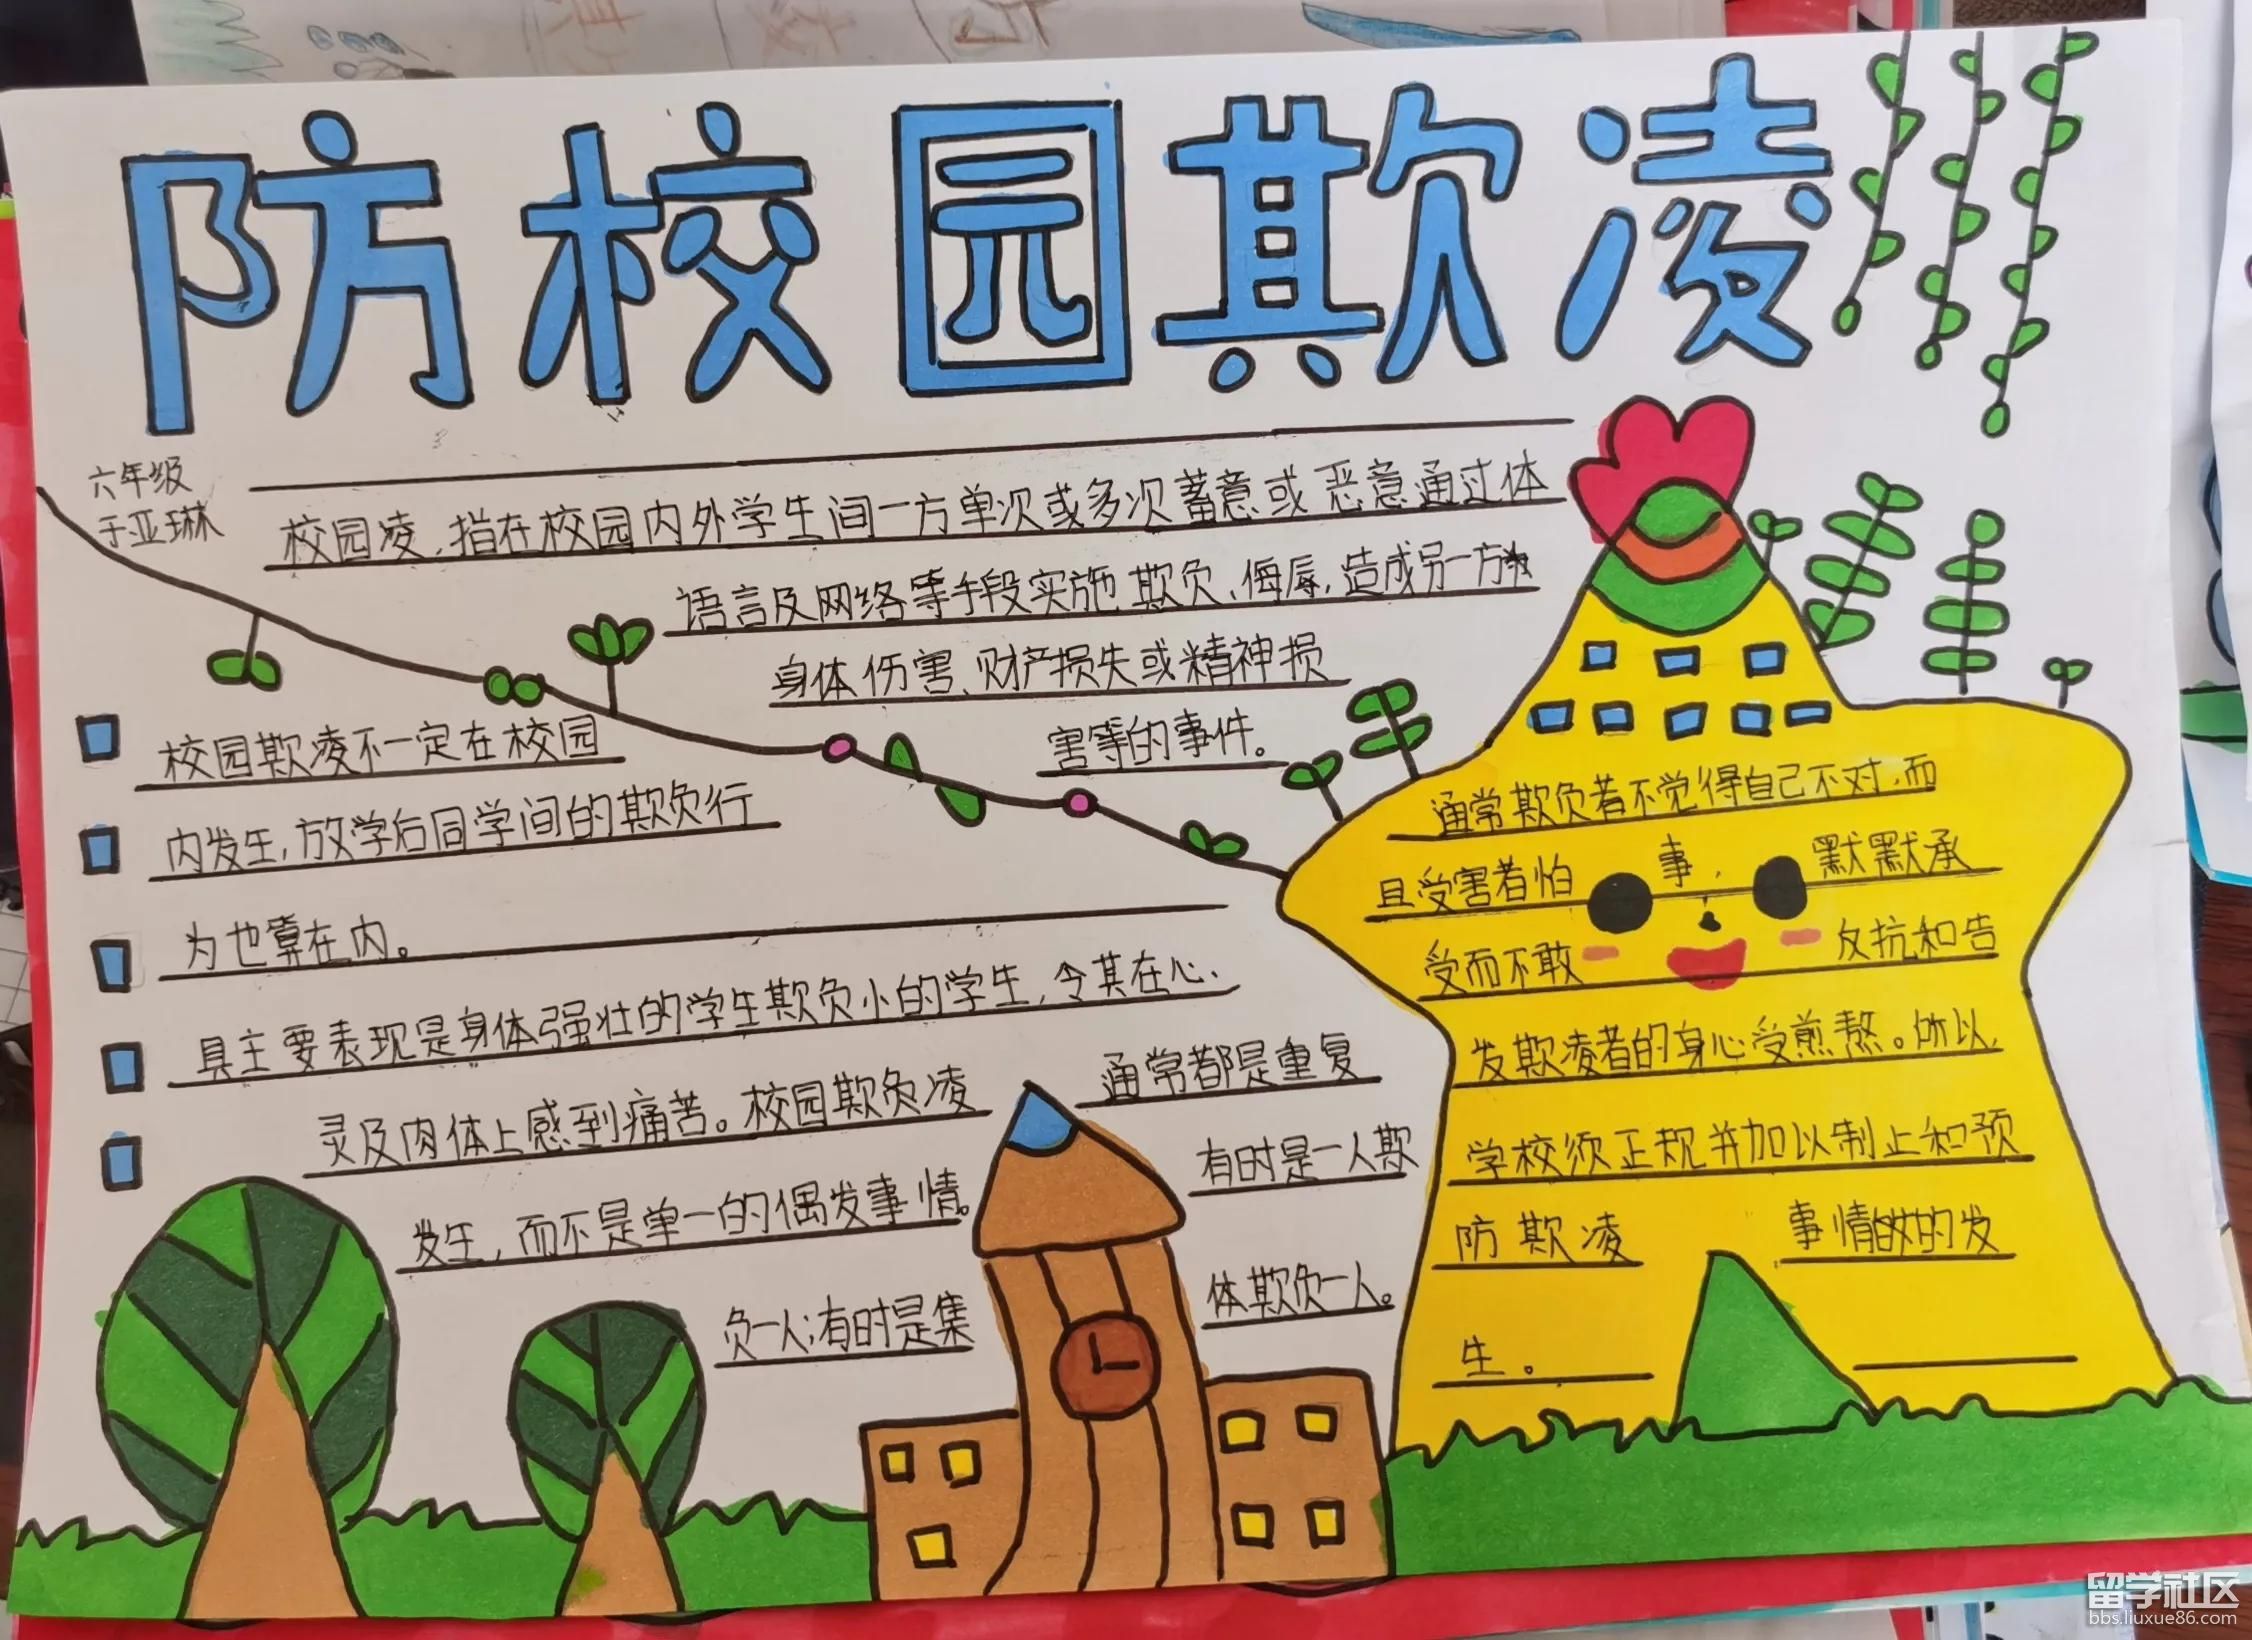 防校园欺凌
六年级
于亚琳
校园凌,指在校园内外学生间一方单次或多次蓄意或恶意通过体
语言及网络等手段实施欺负、侮辱,造成另一方
身体伤害、财产损失或精神损
害等的事件。
校园欺凌不一定在校园
内发生,放学后同学间的欺负行
为也算在内。
具主要表现是身体强壮的学生欺负小的学生,令其在心、
灵及肉体上感到痛苦。校园欺负凌 通常都是重复
发生,而不是单一的偶发事情。 有时是一人欺
负一人;有时是集 体欺负一人。
通常欺负者不觉得自己不对,而
且受害者怕 事, 默默承
受而不敢 反抗和告
发欺凌者的身心受煎熬。所以,
学校须正规并加以制止和预
防欺凌 事情的发
生。
留学社区
bbs.liuxue86.com